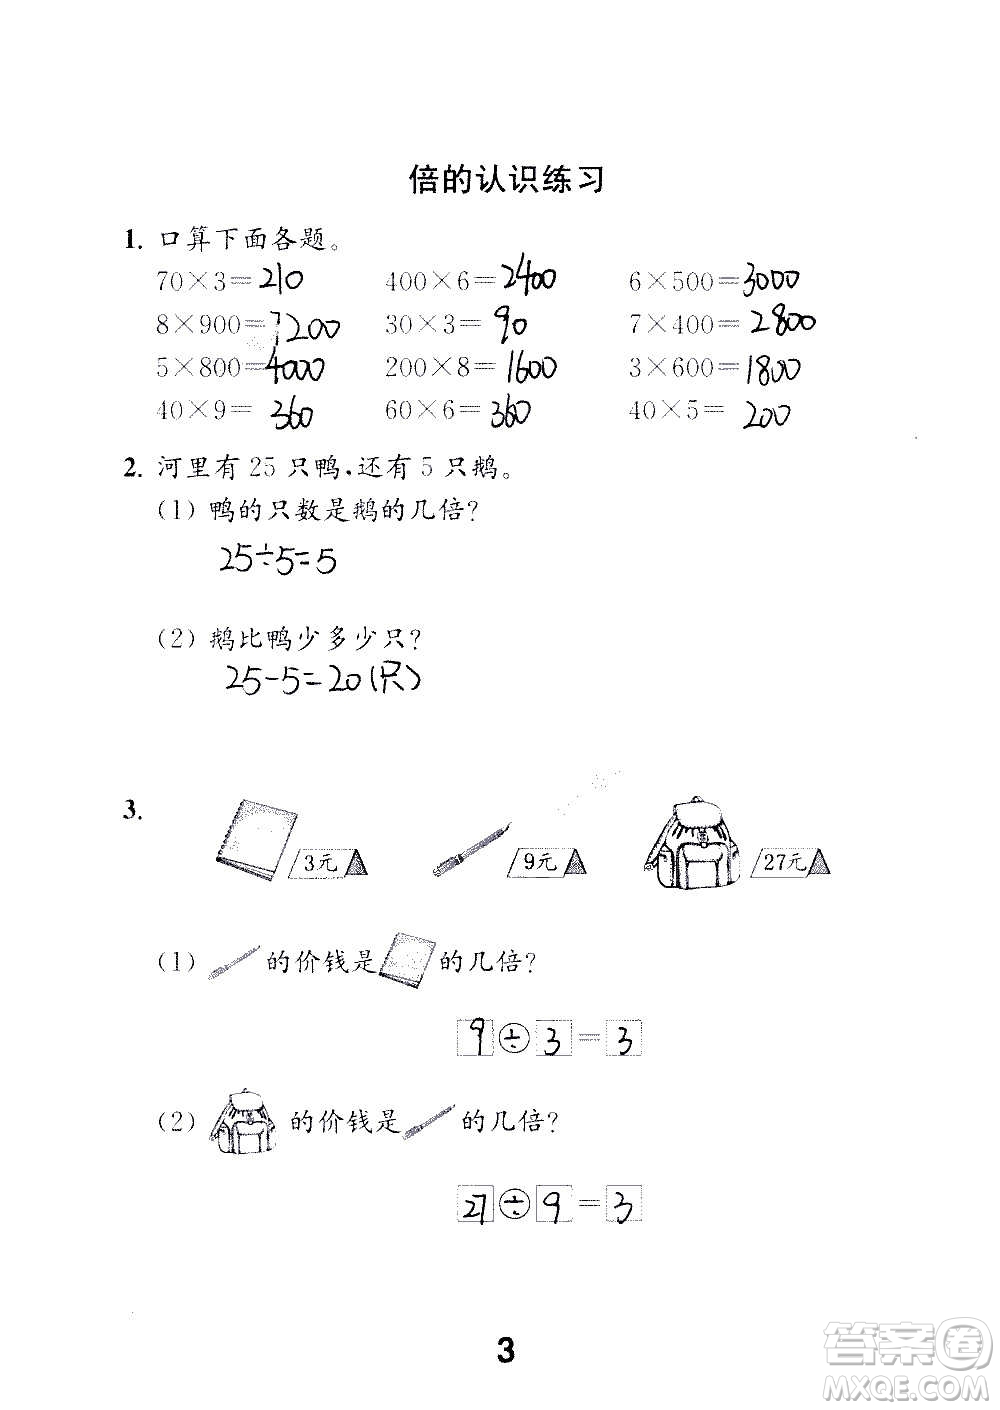 倍的认识练习
1. 口算下面各题。
70×3=210 400×6=2400 6×500=3000
8×900=7200 30×3=90 7×400=2800
5×800=4000 200×8=1600 3×600=1800
40×9=360 60×6=360 40×5=200
2. 河里有 25 只鸭,还有 5 只鹅。
(1) 鸭的只数是鹅的几倍?
25÷5=5
(2) 鹅比鸭少多少只?
25-5=20(只)
3.
3元 9元 27元
(1) 的价钱是 的几倍?
9÷3=3
(2) 的价钱是 的几倍?
27÷9=3
3
答案圈
MXQE.COM